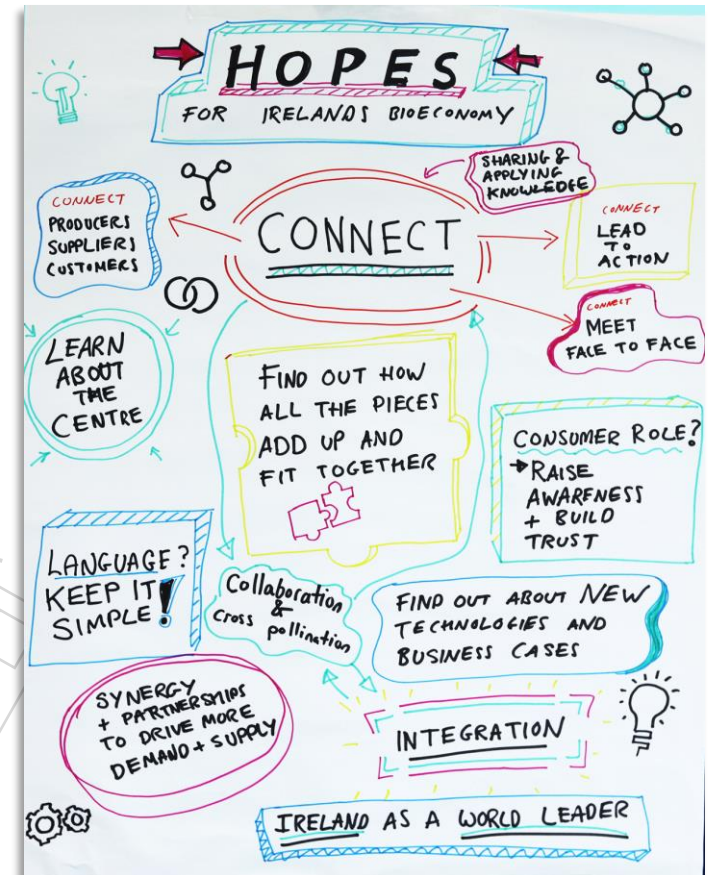 HOPES
FOR IRELANDS BIOECONOMY
SHARING &
APPLYING
KNOWLEDGE
CONNECT
PRODUCERS
SUPPLIERS
CUSTOMERS
CONNECT
CONNECT
LEAD
TO
ACTION
CONNECT
MEET
FACE TO FACE
LEARN
ABOUT
THE
CENTRE
FIND OUT HOW
ALL THE PIECES
ADD UP AND
FIT TOGETHER
CONSUMER ROLE?
RAISE
AWARENESS
+ BUILD
TRUST
LANGUAGE?
KEEP IT
SIMPLE!
Collaboration
&
cross pollination
FIND OUT ABOUT NEW
TECHNOLOGIES AND
BUSINESS CASES
SYNERGY
+ PARTNERSHIPS
TO DRIVE MORE
DEMAND + SUPPLY
INTEGRATION
IRELAND AS A WORLD LEADER